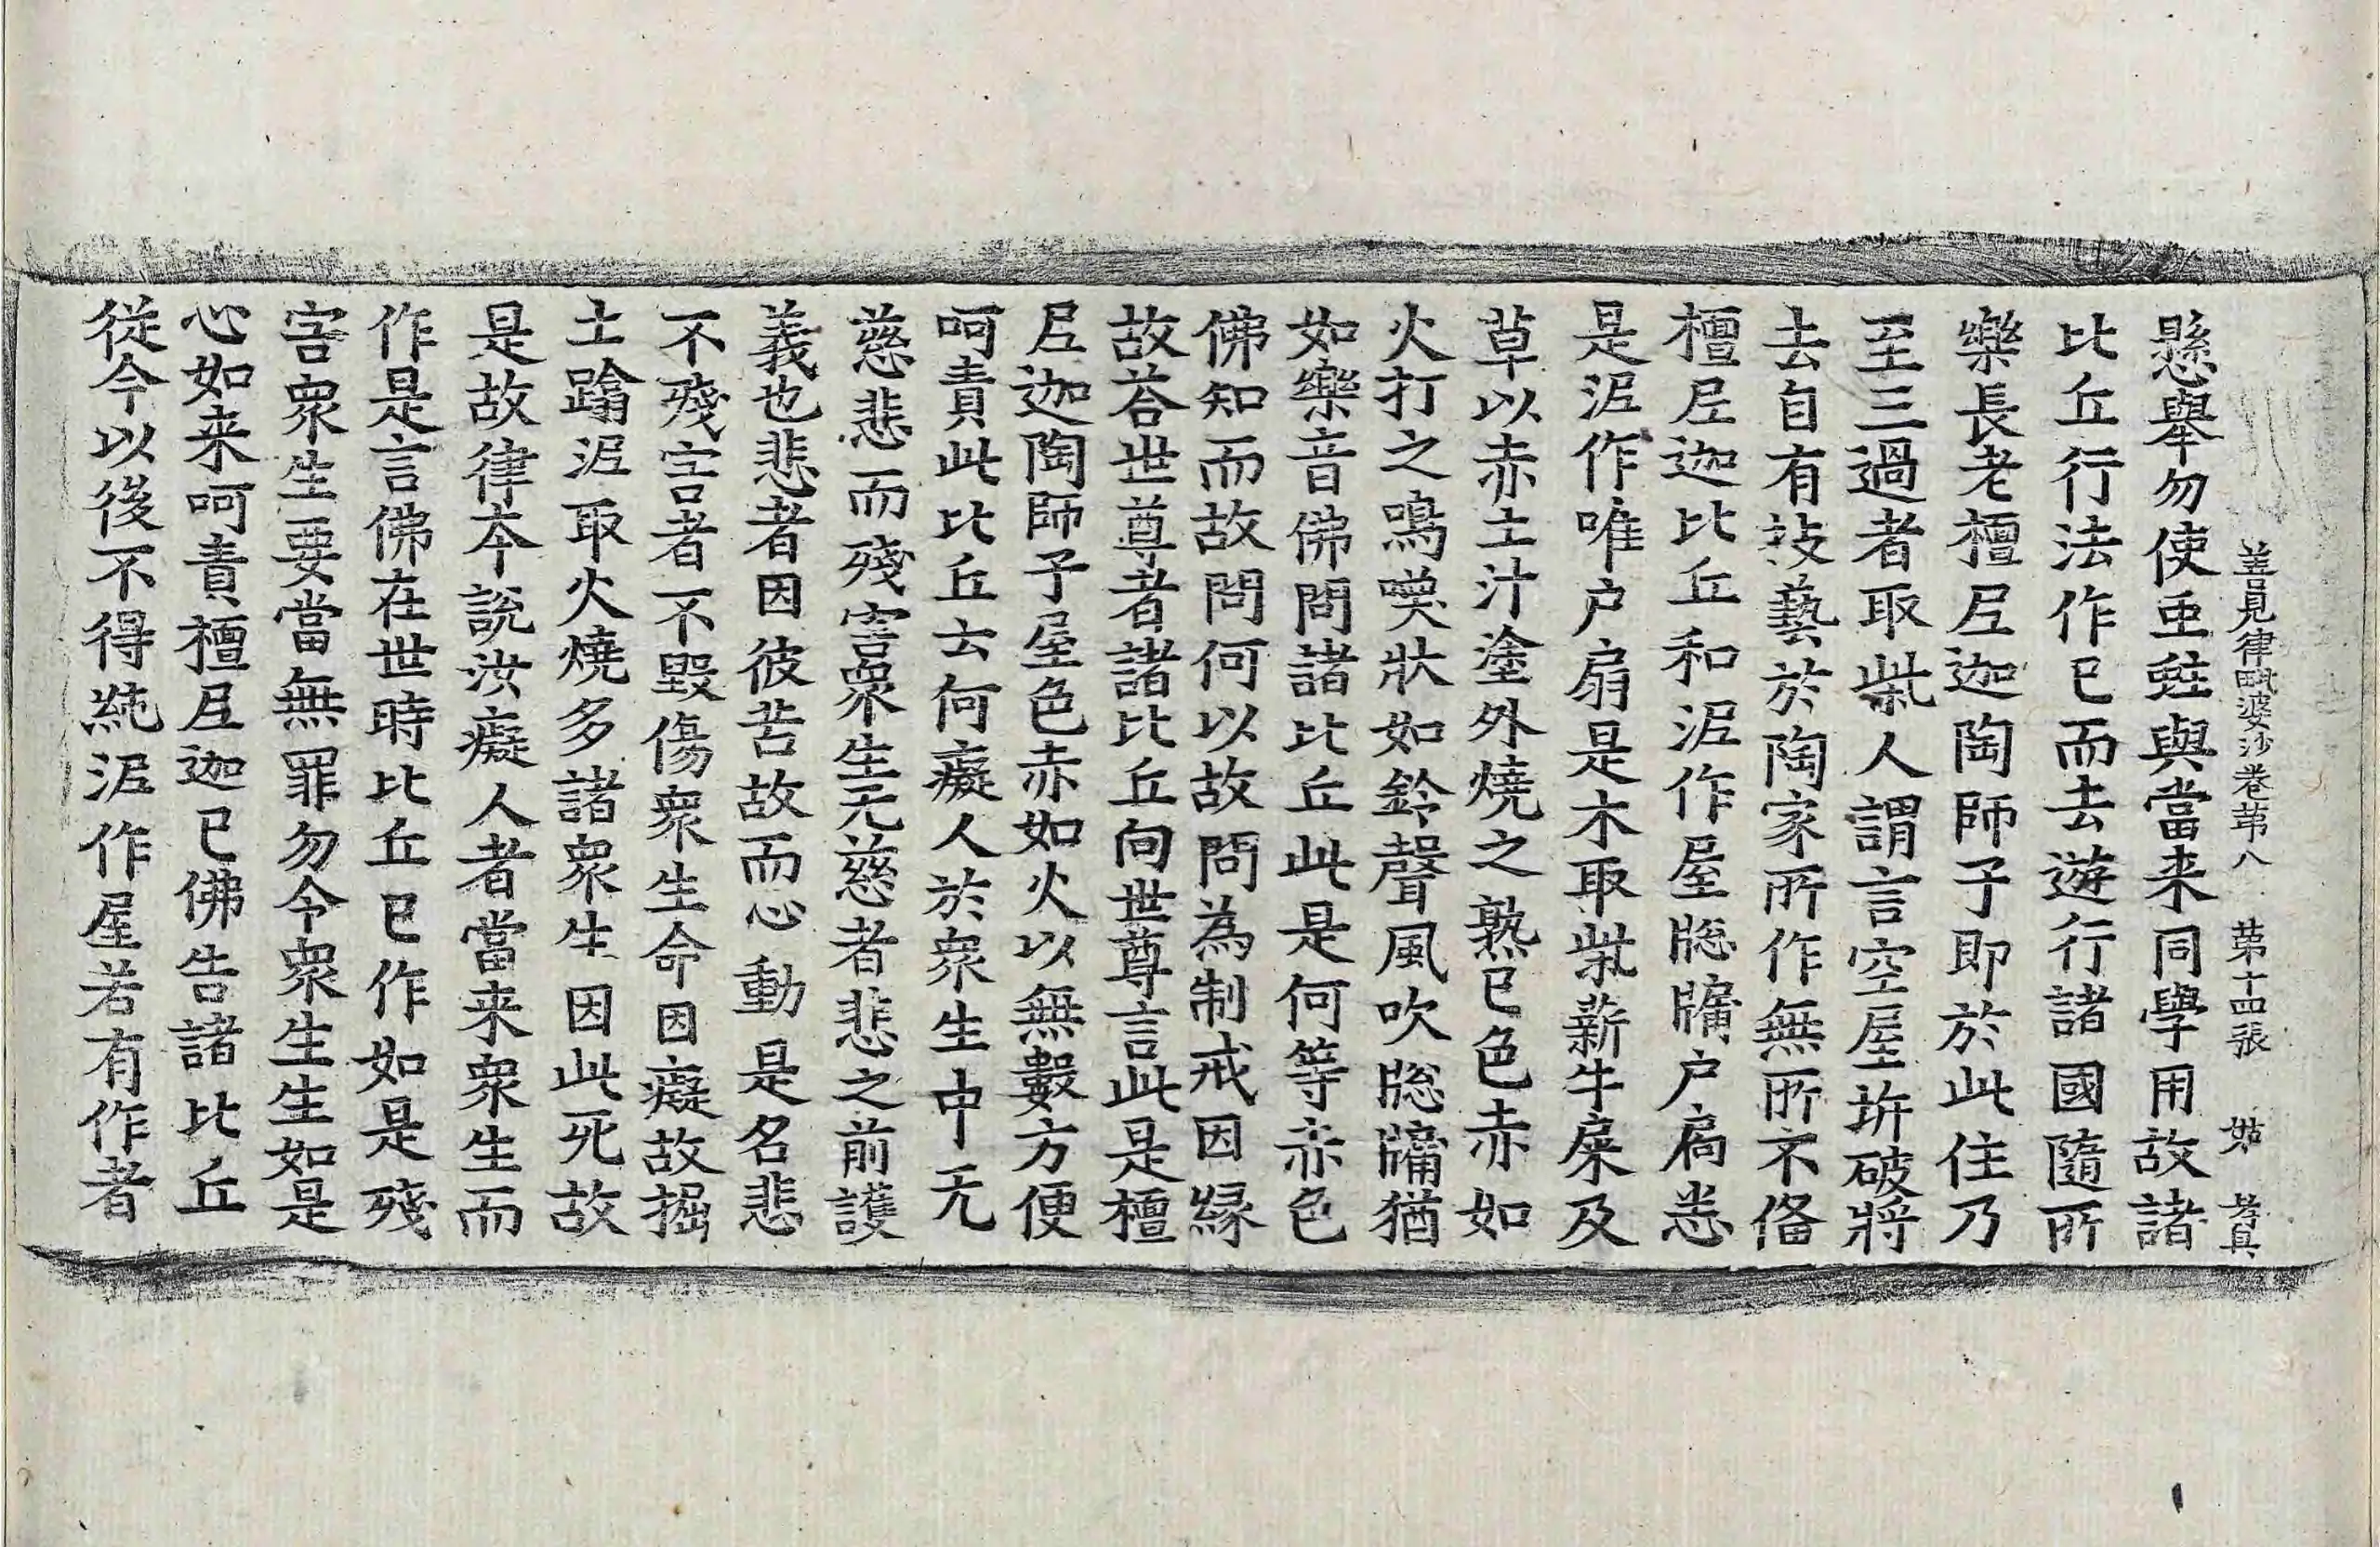 善見律毗婆沙卷苐八　苐十四張　姑　孝真
懸舉勿使䖝蛀與當来同學用故諸
比丘行法作已而去遊行諸國隨所
樂長老檀𡰱迦陶師子即於此住乃
至三過者取柴人謂言空屋拆破將
去自有𢻃藝於陶家所作無所不俻
檀𡰱迦比丘和泥作屋牕牖户扇悉
是泥作唯户扇是木取柴薪牛屎及
草以赤土汁塗外燒之熟已色赤如
火打之鳴喚狀如鈴聲風吹牕牖猶
如樂音佛問諸比丘此是何等赤色
佛知而故問何以故問為制戒因緣
故荅世尊者諸比丘向世尊言此是檀
𡰱迦陶師子屋色赤如火以無數方便
呵責此比丘云何癡人於衆生中无
慈悲而殘害衆生无慈者悲之前護
義也悲者因彼苦故而心動是名悲
不殘害者不毀傷衆生命因癡故掘
土蹋泥取火燒多諸衆生因此死故
是故律夲說汝癡人者當来衆生而
作是言佛在世時比丘已作如是殘
害衆生要當無罪勿令衆生生如是
心如来呵責檀𡰱迦已佛告諸比丘
從今以後不得純泥作屋若有作者